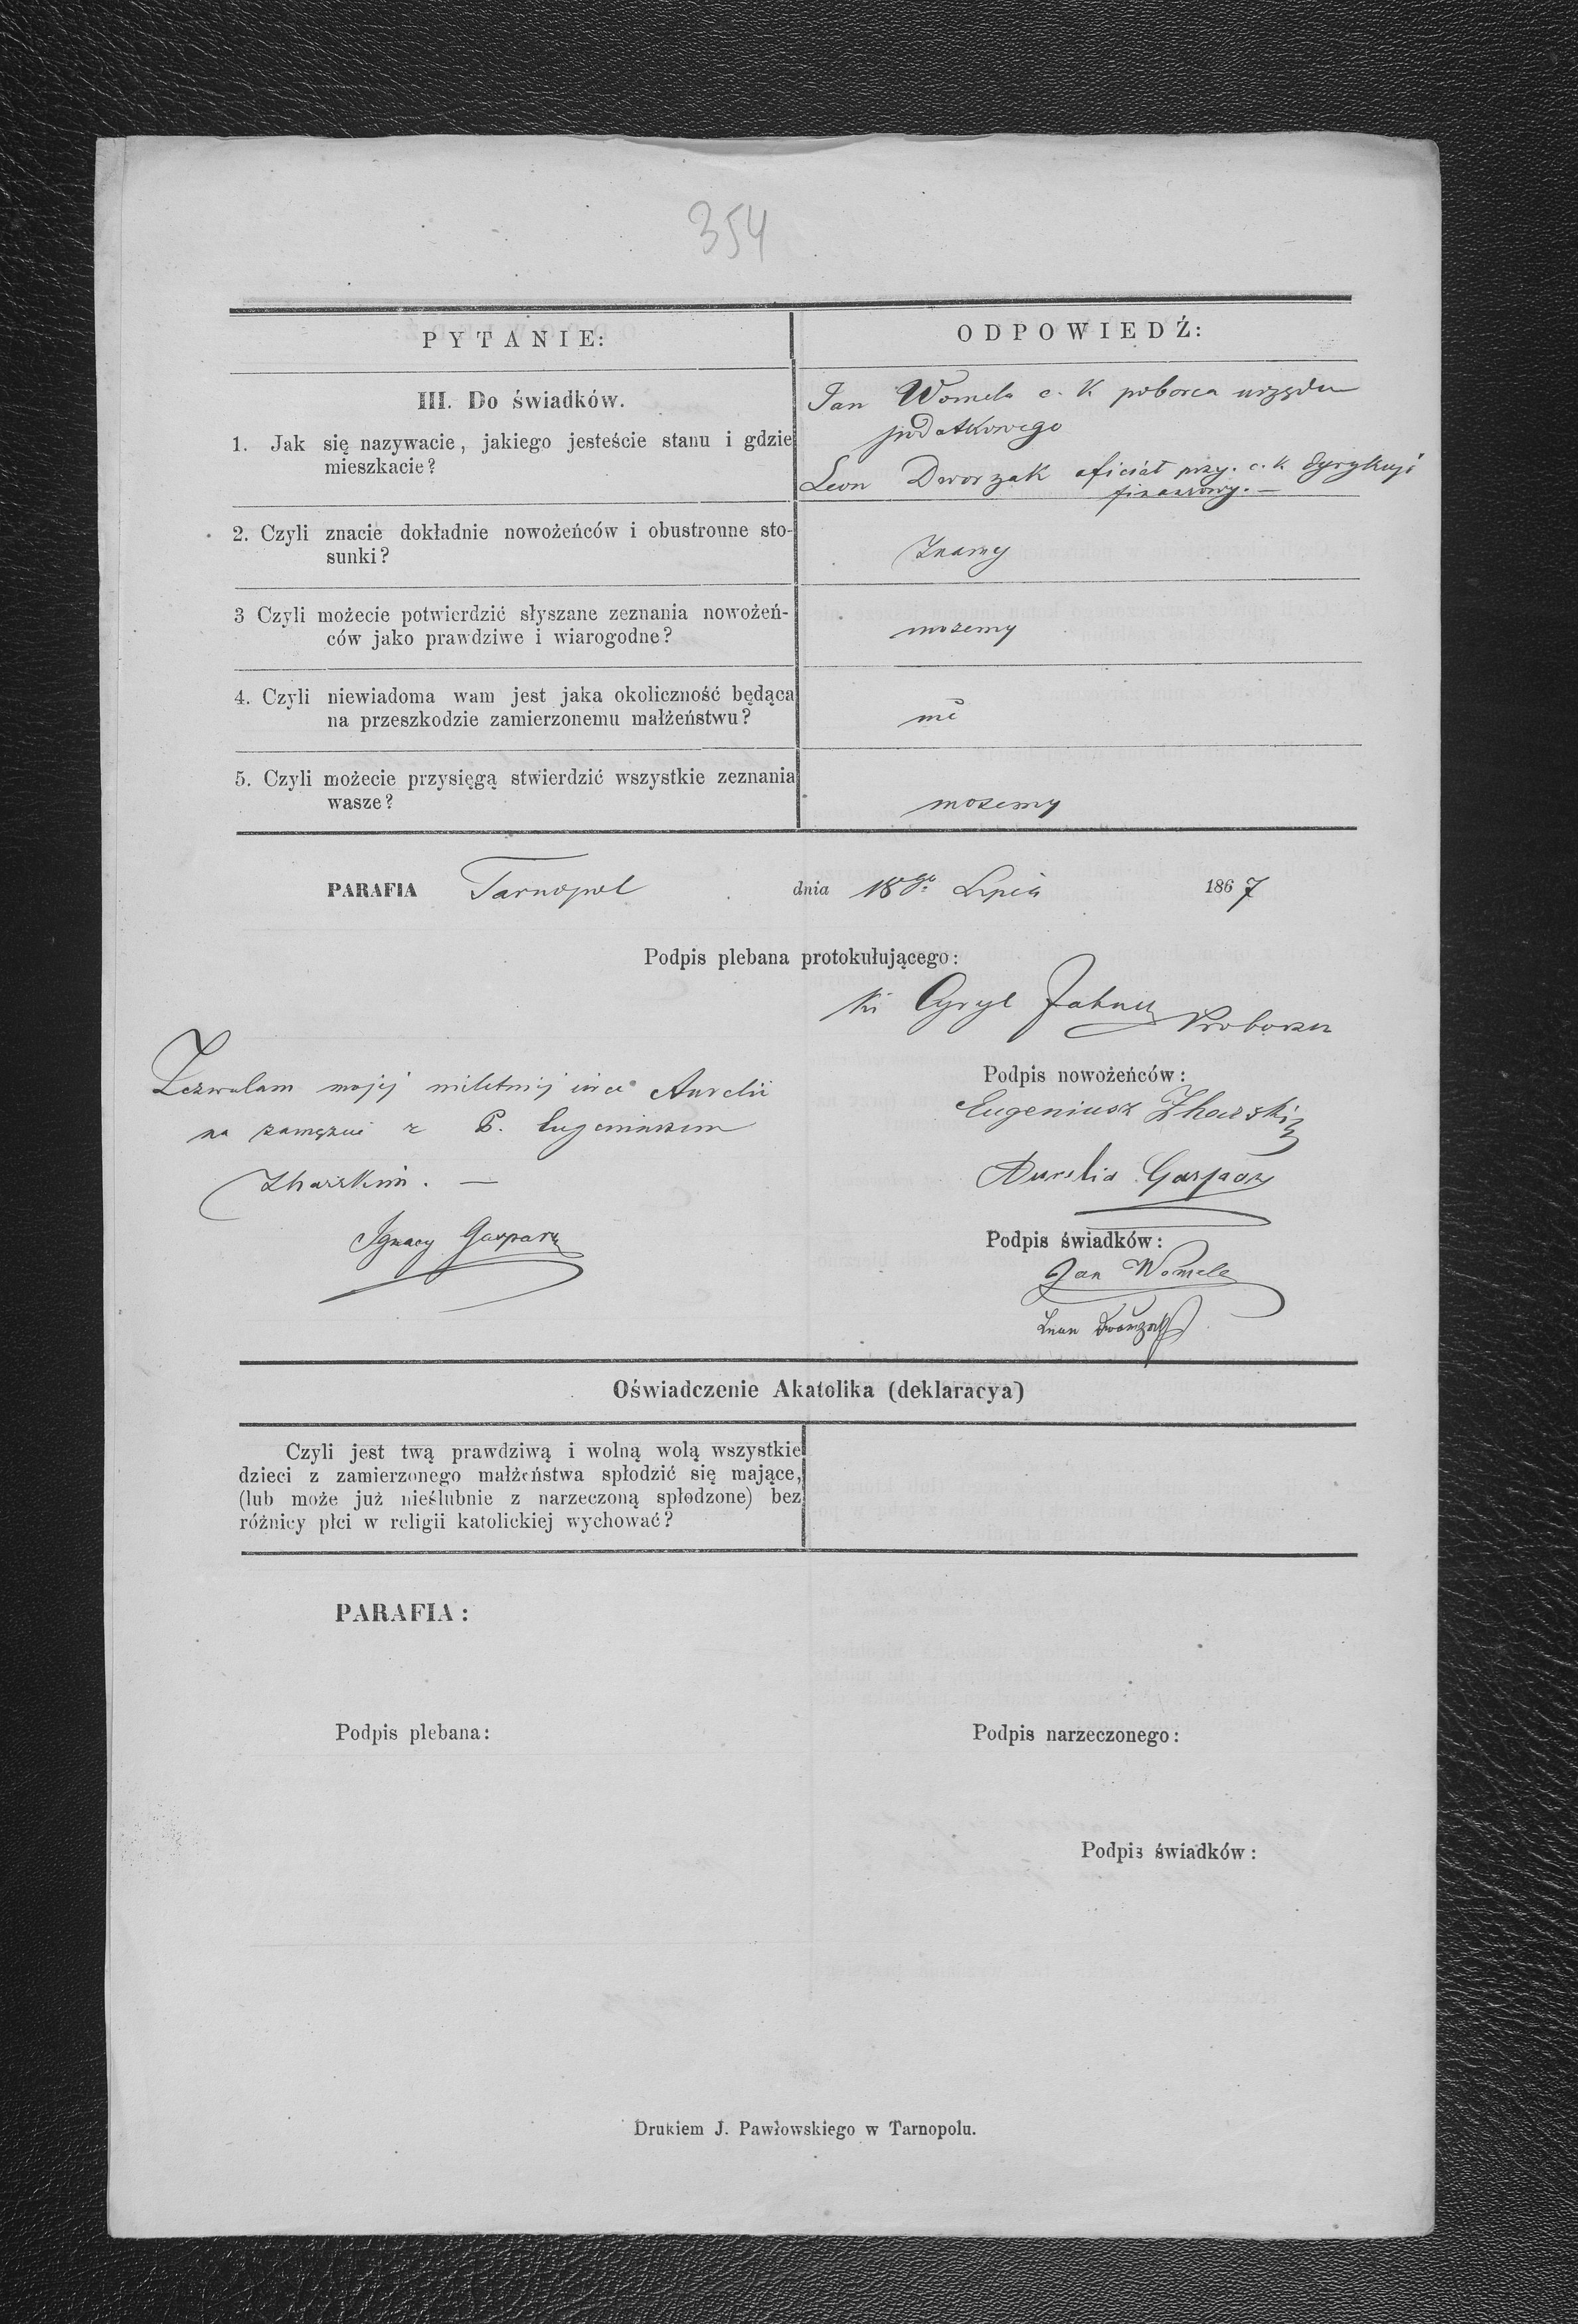 354
PYTANIE:
ODPOWIEDŹ:
III. Do świadków.
1. Jak się nazywacie, jakiego jesteście stanu i gdzie
mieszkacie?
Jan Womela c. k poborca urzędu
podatkowego
Leon Dworzak oficiał przy. c. k. dyrykcyi
finansowy. —
2. Czyli znacie dokładnie nowożeńców i obustronne sto-
sunki?
Znamy
3 Czyli możecie potwierdzić słyszane zeznania nowożeń-
ców jako prawdziwe i wiarogodne?
możemy
4. Czyli niewiadoma wam jest jaka okoliczność będąca
na przeszkodzie zamierzonemu małżeństwu?
nie
5. Czyli możecie przysięgą stwierdzić wszystkie zeznania
wasze?
możemy
PARAFIA Tarnopol dnia 18go Lipca 1867
Podpis plebana protokułującego:
Cyryl Proboszcz
Zezwalam mojej niletniej Aurelii
na zamęzcie z P. Eugeniuszem
Zharskim. —
Ignacy Gaspary
Podpis nowożeńców:
Eugeniusz Zharski
Aurelia Gaspary
Podpis świadków:
Jan Womela
Leon Dworzak
Oświadczenie Akatolika (deklaracya)
Czyli jest twą prawdziwą i wolną wolą wszystkie
dzieci z zamierzonego małżeństwa spłodzić się mające,
(lub może już nieślubnie z narzeczoną spłodzone) bez
różnicy płci w religii katolickiej wychować?
PARAFIA:
Podpis plebana:
Podpis narzeczonego:
Podpis świadków:
Drukiem J. Pawłowskiego w Tarnopolu.